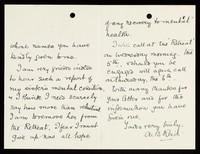 whose names you have
kindly given me.
I am very grieved indeed
to hear such a report of
my sister's mental condition,
& I think I need scarcely
say how more than reluctant
I am to remove her from
the Retreat. I fear I must
give up now all hope
of any recovery to mental
health.
I will call at the Retreat
on Wednesday morning, the
5th, & should you be
engaged will again call
on Thursday, the 6.
With many thanks for
your letter and for the
information you have
given me.
Yours very truly,